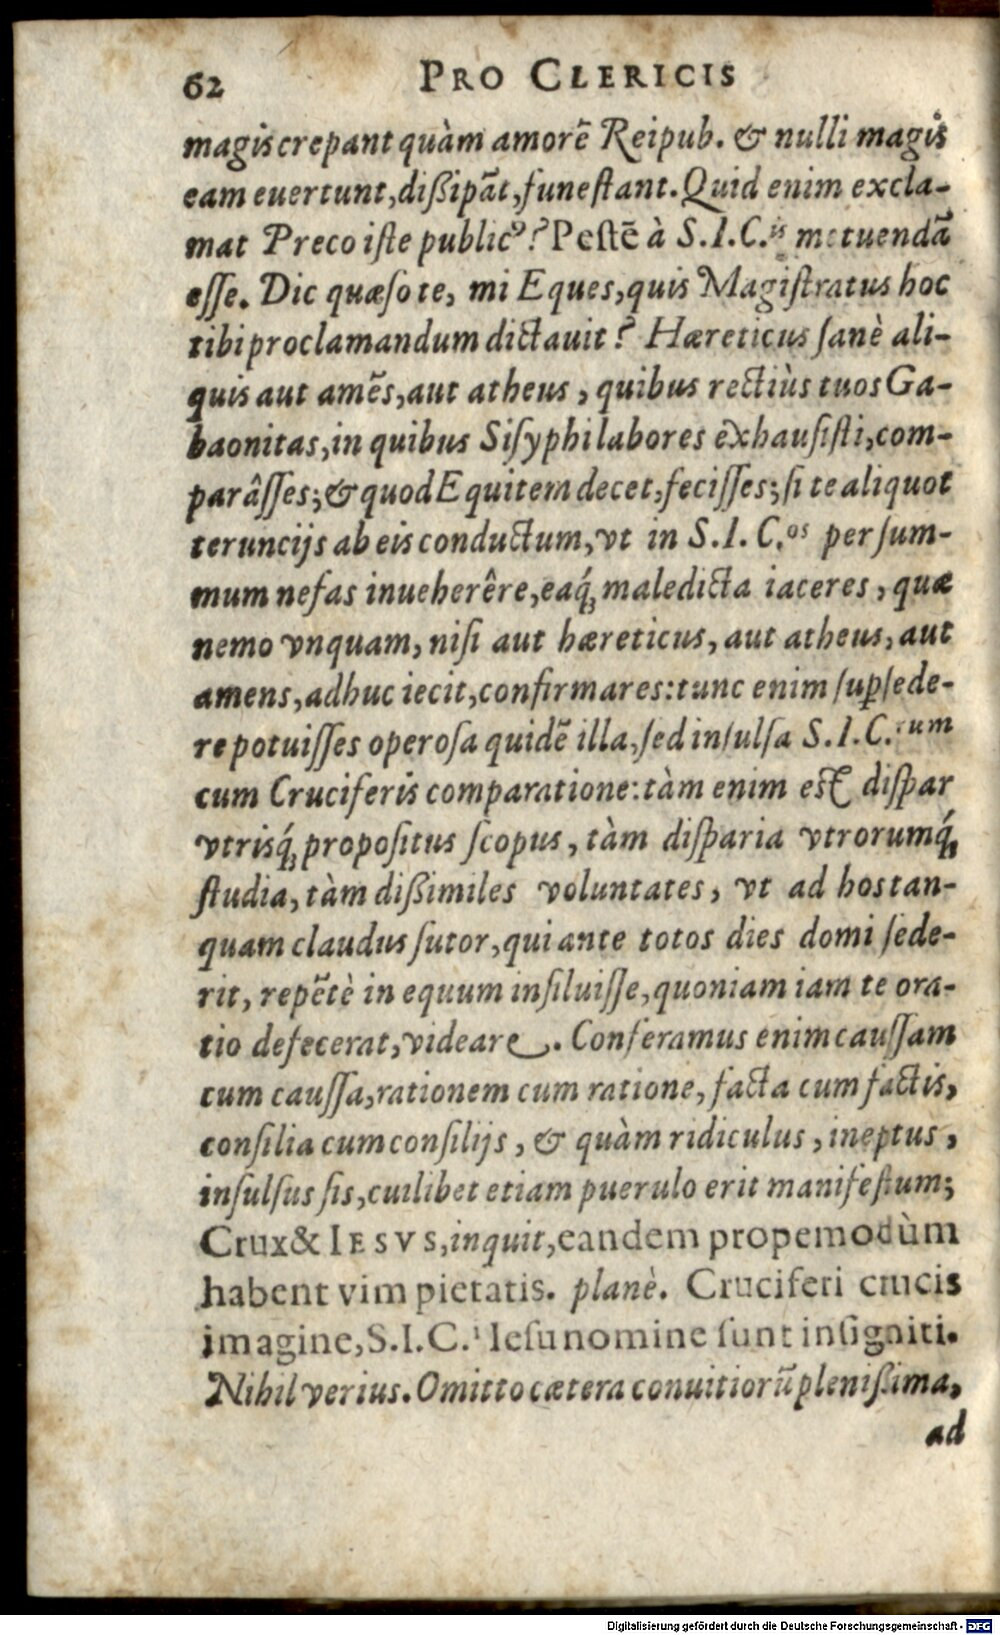 62 PRO CLERICIS
magis crepant quàm amorẽ Reipub. & nulli magis
eam euertunt, dißipãt, funeſtant. Quid enim excla-
mat Preco iſte publicꝰ? Peſtẽ à S.I.C.is metuendã
eſſe. Dic quæſo te, mi Eques, quis Magiſtratus hoc
tibi proclamandum dictauit? Hæreticus ſanè ali-
quis aut amẽs, aut atheus, quibus rectiùs tuos Ga-
baonitas, in quibus Siſyphi labores exhauſiſti, com-
parâſſes; & quod Equitem decet, feciſſes; ſi te aliquot
teruncijs ab eis conductum, vt in S.I.C.os per ſum-
mum nefas inueherêre, eaq́; maledicta iaceres, quæ
nemo vnquam, niſi aut hæreticus, aut atheus, aut
amens, adhuc iecit, confirmares: tunc enim ſuꝑſede-
re potuiſſes operoſa quidẽ illa, ſed inſulſa S.I.C.rum
cum Cruciferis comparatione: tàm enim eſt diſpar
vtrisq́; propoſitus ſcopus, tàm diſparia vtrorumq́;
ſtudia, tàm dißimiles voluntates, vt ad hos tan-
quam claudus ſutor, qui ante totos dies domi ſede-
rit, repẽtè in equum inſiluiſſe, quoniam iam te ora-
tio defecerat, videare. Conferamus enim cauſſam
cum cauſſa, rationem cum ratione, facta cum factis,
conſilia cum conſilijs, & quàm ridiculus, ineptus,
inſulſus ſis, cuilibet etiam puerulo erit manifeſtum;
Crux & IESVS, inquit, eandem propemodùm
habent vim pietatis. planè. Cruciferi crucis
imagine, S.I.C.i Ieſu nomine ſunt inſigniti.
Nihil verius. Omitto cætera conuitiorũ pleniſſima,
ad
Digitalisierung gefördert durch die Deutsche Forschungsgemeinschaft - DFG